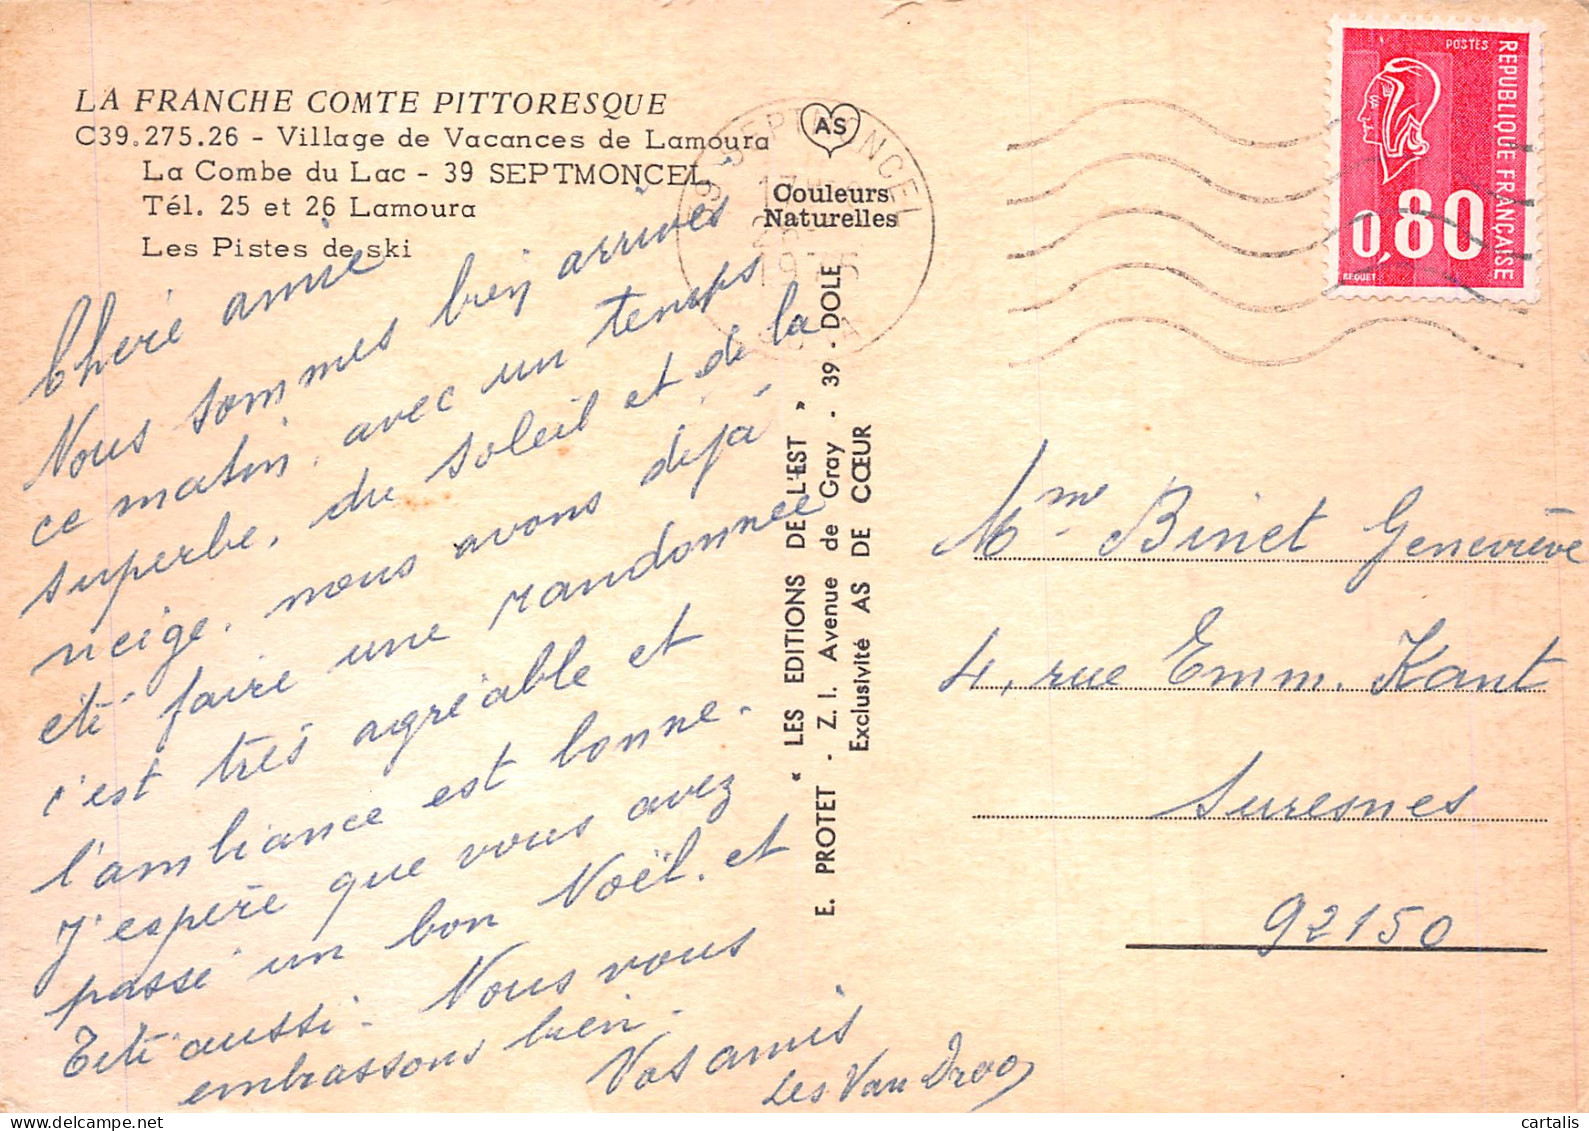 LA FRANCHE COMTE PITTORESQUE
C39.275.26 - Village de Vacances de Lamoura
La Combe du Lac - 39 SEPTMONCEL
Tél. 25 et 26 Lamoura
Les Pistes de ski
AS
Couleurs
Naturelles
SEPTMONCEL
17
1975
JURA
POSTES
REPUBLIQUE FRANÇAISE
0,80
BEQUET
Cheré amie
Nous sommes bien arrivés
ce matin, avec un temps
superbe, du soleil et de la
neige. nous avons déjà
été faire une randonnée
c'est très agréable et
l'ambiance est bonne.
J'espère que vous avez
passé un bon Noël. et
Teté aussi. Nous vous
embrassons bien.
Vos amis
Les Van Droo
« LES EDITIONS DE L'EST »
E. PROTET - Z. I. Avenue de Gray - 39 - DOLE
Exclusivité AS DE CŒUR
Mme Binet Geneviève
4, rue Emm. Kant
Suresnes
92150
delcampe.net
cartalis